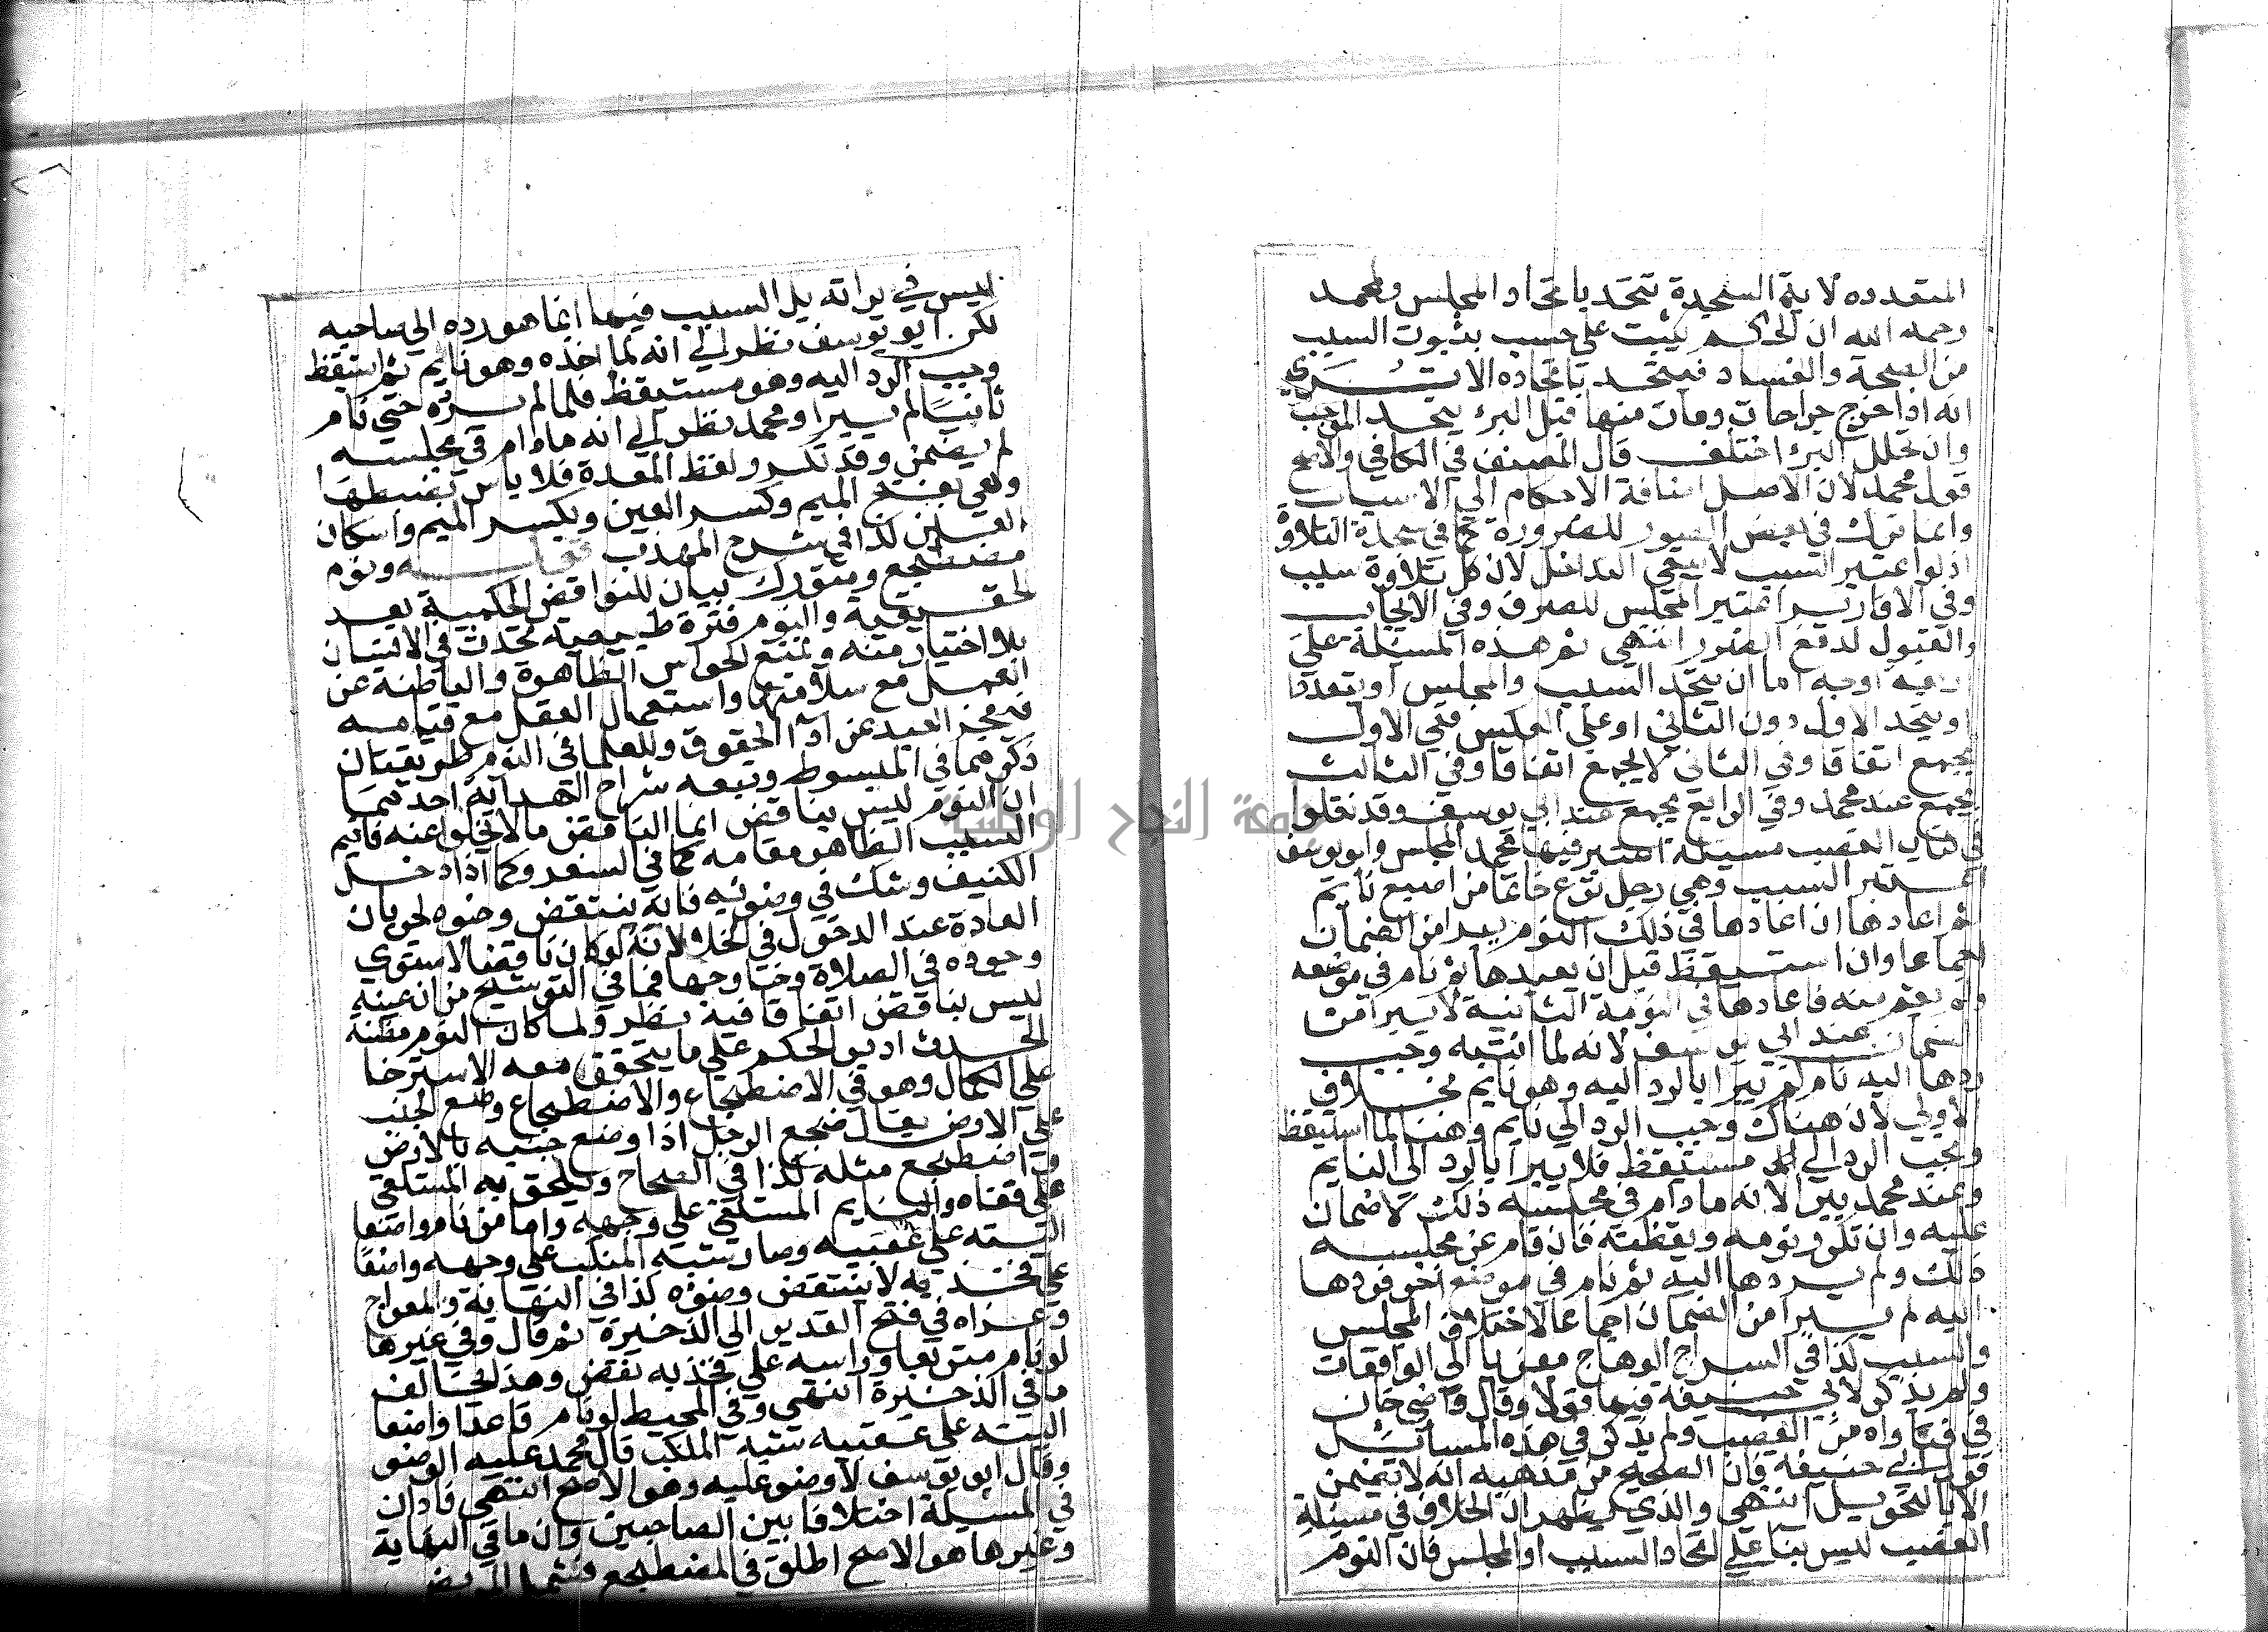 المتعدده لاية السجدة تتحد باتحاد المجلس ولمحمد
رحمه الله ان الحكم يثبت على حسب بثبوت السبب
من الصحة والفساد فيتحد باتحاده الا ترى
انه اذا جرح جراحات ومات منها قبل البرء يتحد الموجب
وان تخلل البرء اختلف قال المصنف في الكافي والاصح
قول محمد لان الاصل اضافة الاحكام الي الاسباب
وانما ترك في بعض الصور للضرورة كما في سجدة التلاوة
اذ لو اعتبر السبب لانتفي التداخل لان كل تلاوة سبب
وفي الاقارير اعتبر المجلس للعرف وفي الايجاب
والقبول لدفع الضرر انتهى ثم هذه المسئلة على
اربعة اوجه اما ان يتحد السبب والمجلس او يتعددا
او يتحد الاول دون الثاني او على العكس ففي الاول
يجمع اتفاقا وفي الثاني لا يجمع اتفاقا وفي الثالث
يجمع عند محمد وفي الرابع يجمع عند ابي يوسف وقد نقلوا
في كتاب الغصب مسئلة اعتبر فيها محمد المجلس وابو يوسف
اعتبر السبب وهي رجل نزع خاتما من اصبع نايم
ثم اعادها ان اعادها في ذلك النوم يبرا من الضمان
اجماعا وان استيقظ قبل ان يعيدها ثم نام في موضعه
ولم يقم منه فاعادها في النومة الثانية لا يبرا من
الضمان عند ابي يوسف لانه لما انتبه وجب
ردها اليه نام لم يبرا بالرد اليه وهو نايم بخلاف
الاولي لان هناك وجب الرد الي نايم وهنا لما استيقظ
وجب الرد الي مستيقظ فلا يبرا بالرد الي النايم
وعند محمد يبرا لانه ما دام في مجلسه ذلك لا ضمان
عليه وان تكرر نومه ويقظته فان قام عن مجلسه
ذلك ولم يردها اليه ثم نام في موضع اخر فردها
اليه لم يبرا من الضمان اجماعا لاختلاف المجلس
والسبب كذا في السراج الوهاج معزيا الي الواقعات
ولم يذكر لابي حنيفة فيها قولا وقال قاضي خان
في فتاواه من الغصب ولم يذكر في هذه المسائل
قول ابي حنيفة فان الصحيح من مذهبه انه لا يضمن
الا بالتحويل انتهى والذي يظهر ان الخلاف في مسئلة
الغصب ليس بنا على اتحاد السبب او المجلس فان النوم
ليس في براته بل السبب فيها انما هو رده الي صاحبه
لكن ابو يوسف نظر الي انه لما اخذه وهو نايم ثم استيقظ
وجب الرد اليه وهو مستيقظ فلما لم يرده حتي نام
ثانيا لم يبرا ومحمد نظر الي انه ما دام في مجلسه
لم يضمن وقد تكرر لفظ المعدة فلا باس بضبطها
وهي بفتح الميم وكسر العين وبكسر الميم واسكان
العين كذا في شرح المهذب قوله ونوم
مضطجع ومتورك بيان للنواقض الحكمية بعد
الحقيقية والنوم فترة طبيعية تحدث في الانسان
بلا اختيار منه وتمنع الحواس الظاهرة والباطنة عن
العمل مع سلامتها واستعمال العقل مع قيامه
فيعجز العبد عن ادآ الحقوق وللعلما في النوم طريقتان
ذكرهما في المبسوط وتبعه شراح الهداية احدهما
ان النوم ليس بناقض انما الناقض ما لا يخلو عنه فاقيم
السبب الظاهر مقامه كما في السفر وكما اذا دخل
الكنيف وشك في وضوئه فانه ينتقض وضوه لجريان
العادة عند الدخول في الخلا لانه لو كان ناقضا لاستوي
وجوده في الصلاة وخارجها فما في التوشيح من ان عينه
ليس بناقض اتفاقا فيه نظر ولما كان النوم مظنة
الحدث ادير الحكم علي ما يتحقق معه الاسترخا
علي الكمال وهو في الاضطجاع والاضطجاع وضع الجنب
علي الارض يقال ضجع الرجل اذا وضع جنبه بالارض
واضطجع مثله كذا في الصحاح ويلحق به المستلقي
على قفاه والنايم المستلقي على وجهه واما من نام واضعا
اليته علي عقبيه وصار شبه المنكب علي وجهه واضعا
على فخذيه لا ينتقض وضوه كذا في النهاية والمعراج
وعزاه في فتح القدير الي الذخيرة ثم قال وفي غيرها
لو نام متربعا وراسه علي فخذيه نقض وهذا يخالف
ما في الذخيرة انتهى وفي المحيط لو نام قاعدا واضعا
اليته على عقبيه شبه المنكب قال محمد عليه الوضو
وقال ابو يوسف لا وضو عليه وهو الاصح انتهى فادان
في المسئلة اختلافا بين الصاحبين وان ما في النهاية
وغيرها هو الاصح اطلق في المضطجع فشمل المريض
جامعة النجاح الوطنية